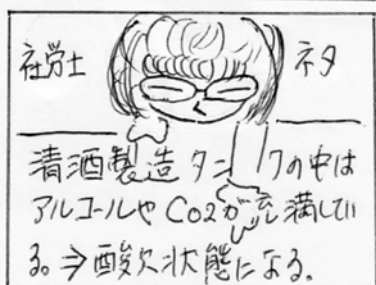 社労士 ネタ
清酒製造タンクの中は
アルコールやCO2が充満してい
る。⇒酸欠状態になる。